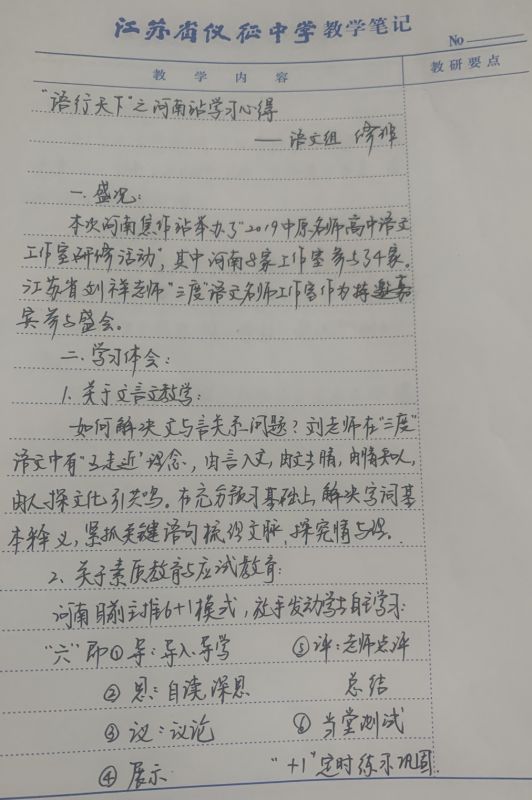 江苏省仪征中学教学笔记
No
教 学 内 容
教研要点
"语行天下"之河南站学习心得
——语文组
一、盛况:
本次河南焦作站举办了"2019中原名师高中语文
工作室研修活动",其中河南8家工作室参与了4家。
江苏省刘祥老师"三度"语文名师工作室作为特邀嘉
宾参与盛会。
二、学习体会:
1、关于文言文教学:
如何解决文与言关系问题?刘老师在"三度"
语文中有"五走近"理念,由言入文,由文生情,由情知人,
由人探文化,引共鸣。在充分预习基础上,解决字词基
本释义,紧抓关键语句梳理文脉,探究情与理。
2、关于素质教育与应试教育:
河南目前主推6+1模式,放手发动学生自主学习:
"六"即①导:导入、导学
②思:自读、深思
③议:议论
④展示
⑤评:老师点评
总结
⑥当堂测试
"+1"定时练习巩固